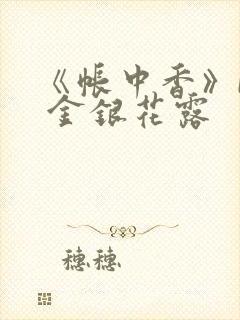 《帐中香》
金银花露
穗穗